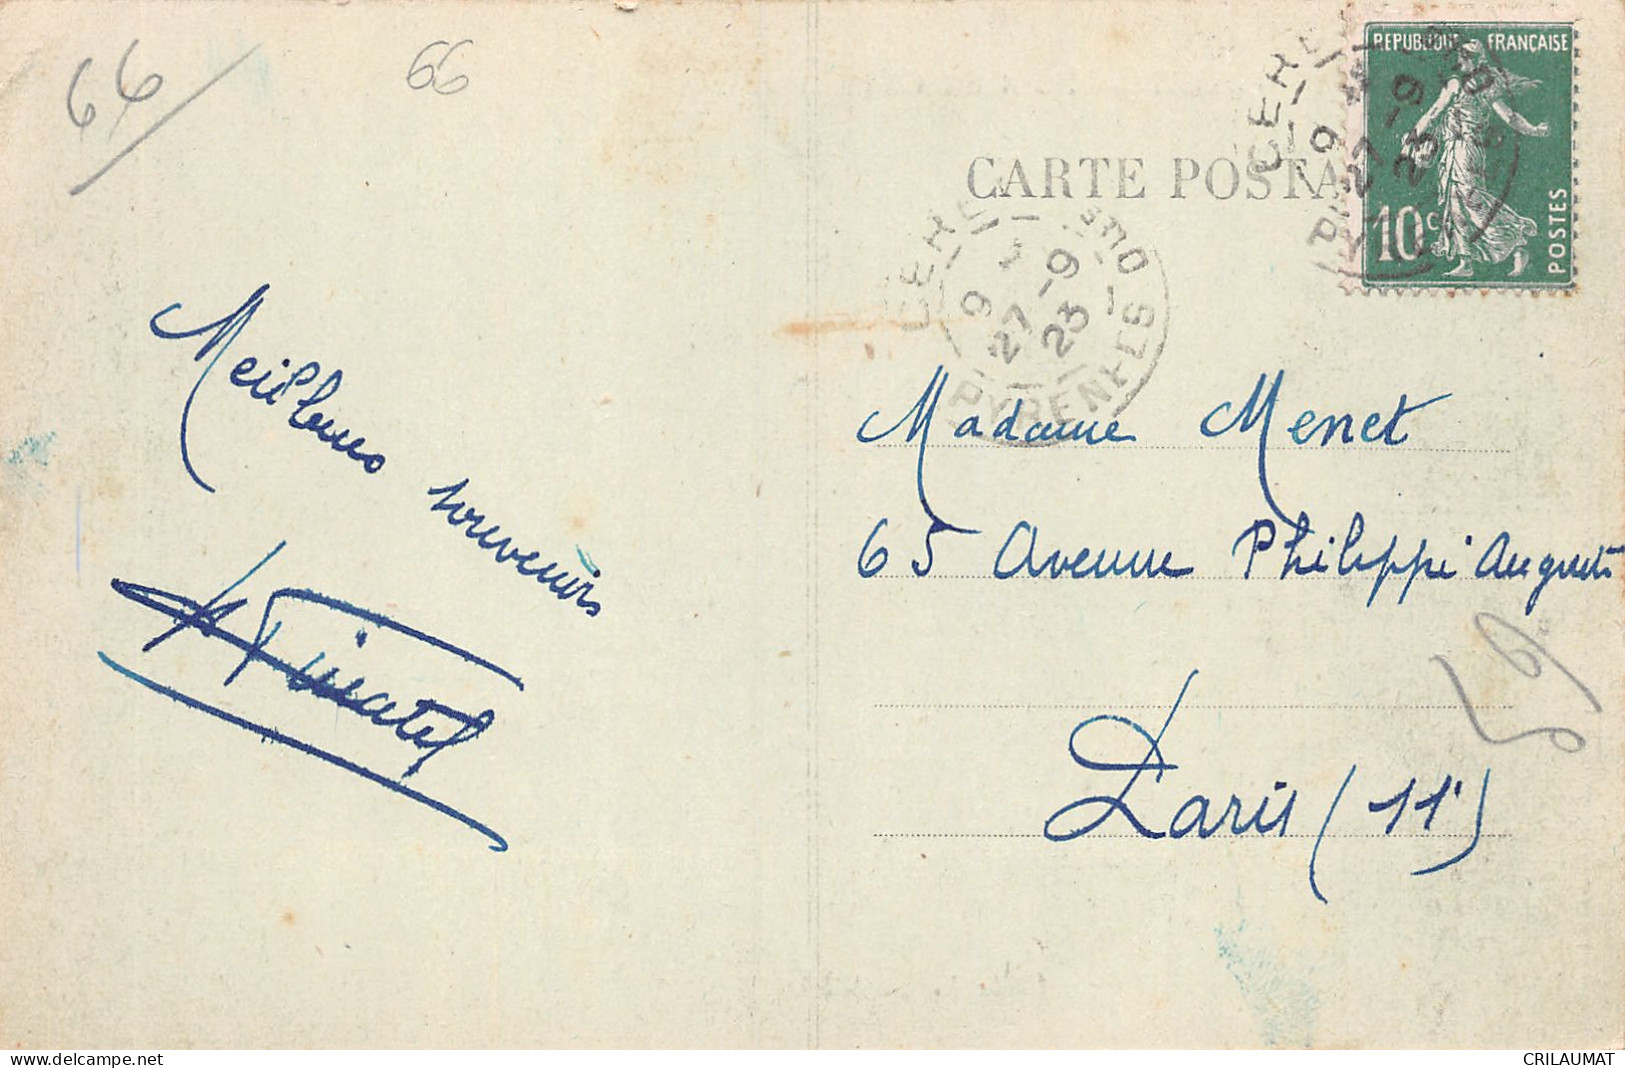 66
66
RÉPUBLIQUE FRANÇAISE
10c
POSTES
CARTE POSTA
CERE
9
27 -9
23
PYRENEES
Meilleurs souvenirs
Madame Menet
65 Avenue Philippe Auguste
Paris (11e)
delcampe.net
CRILAUMAT